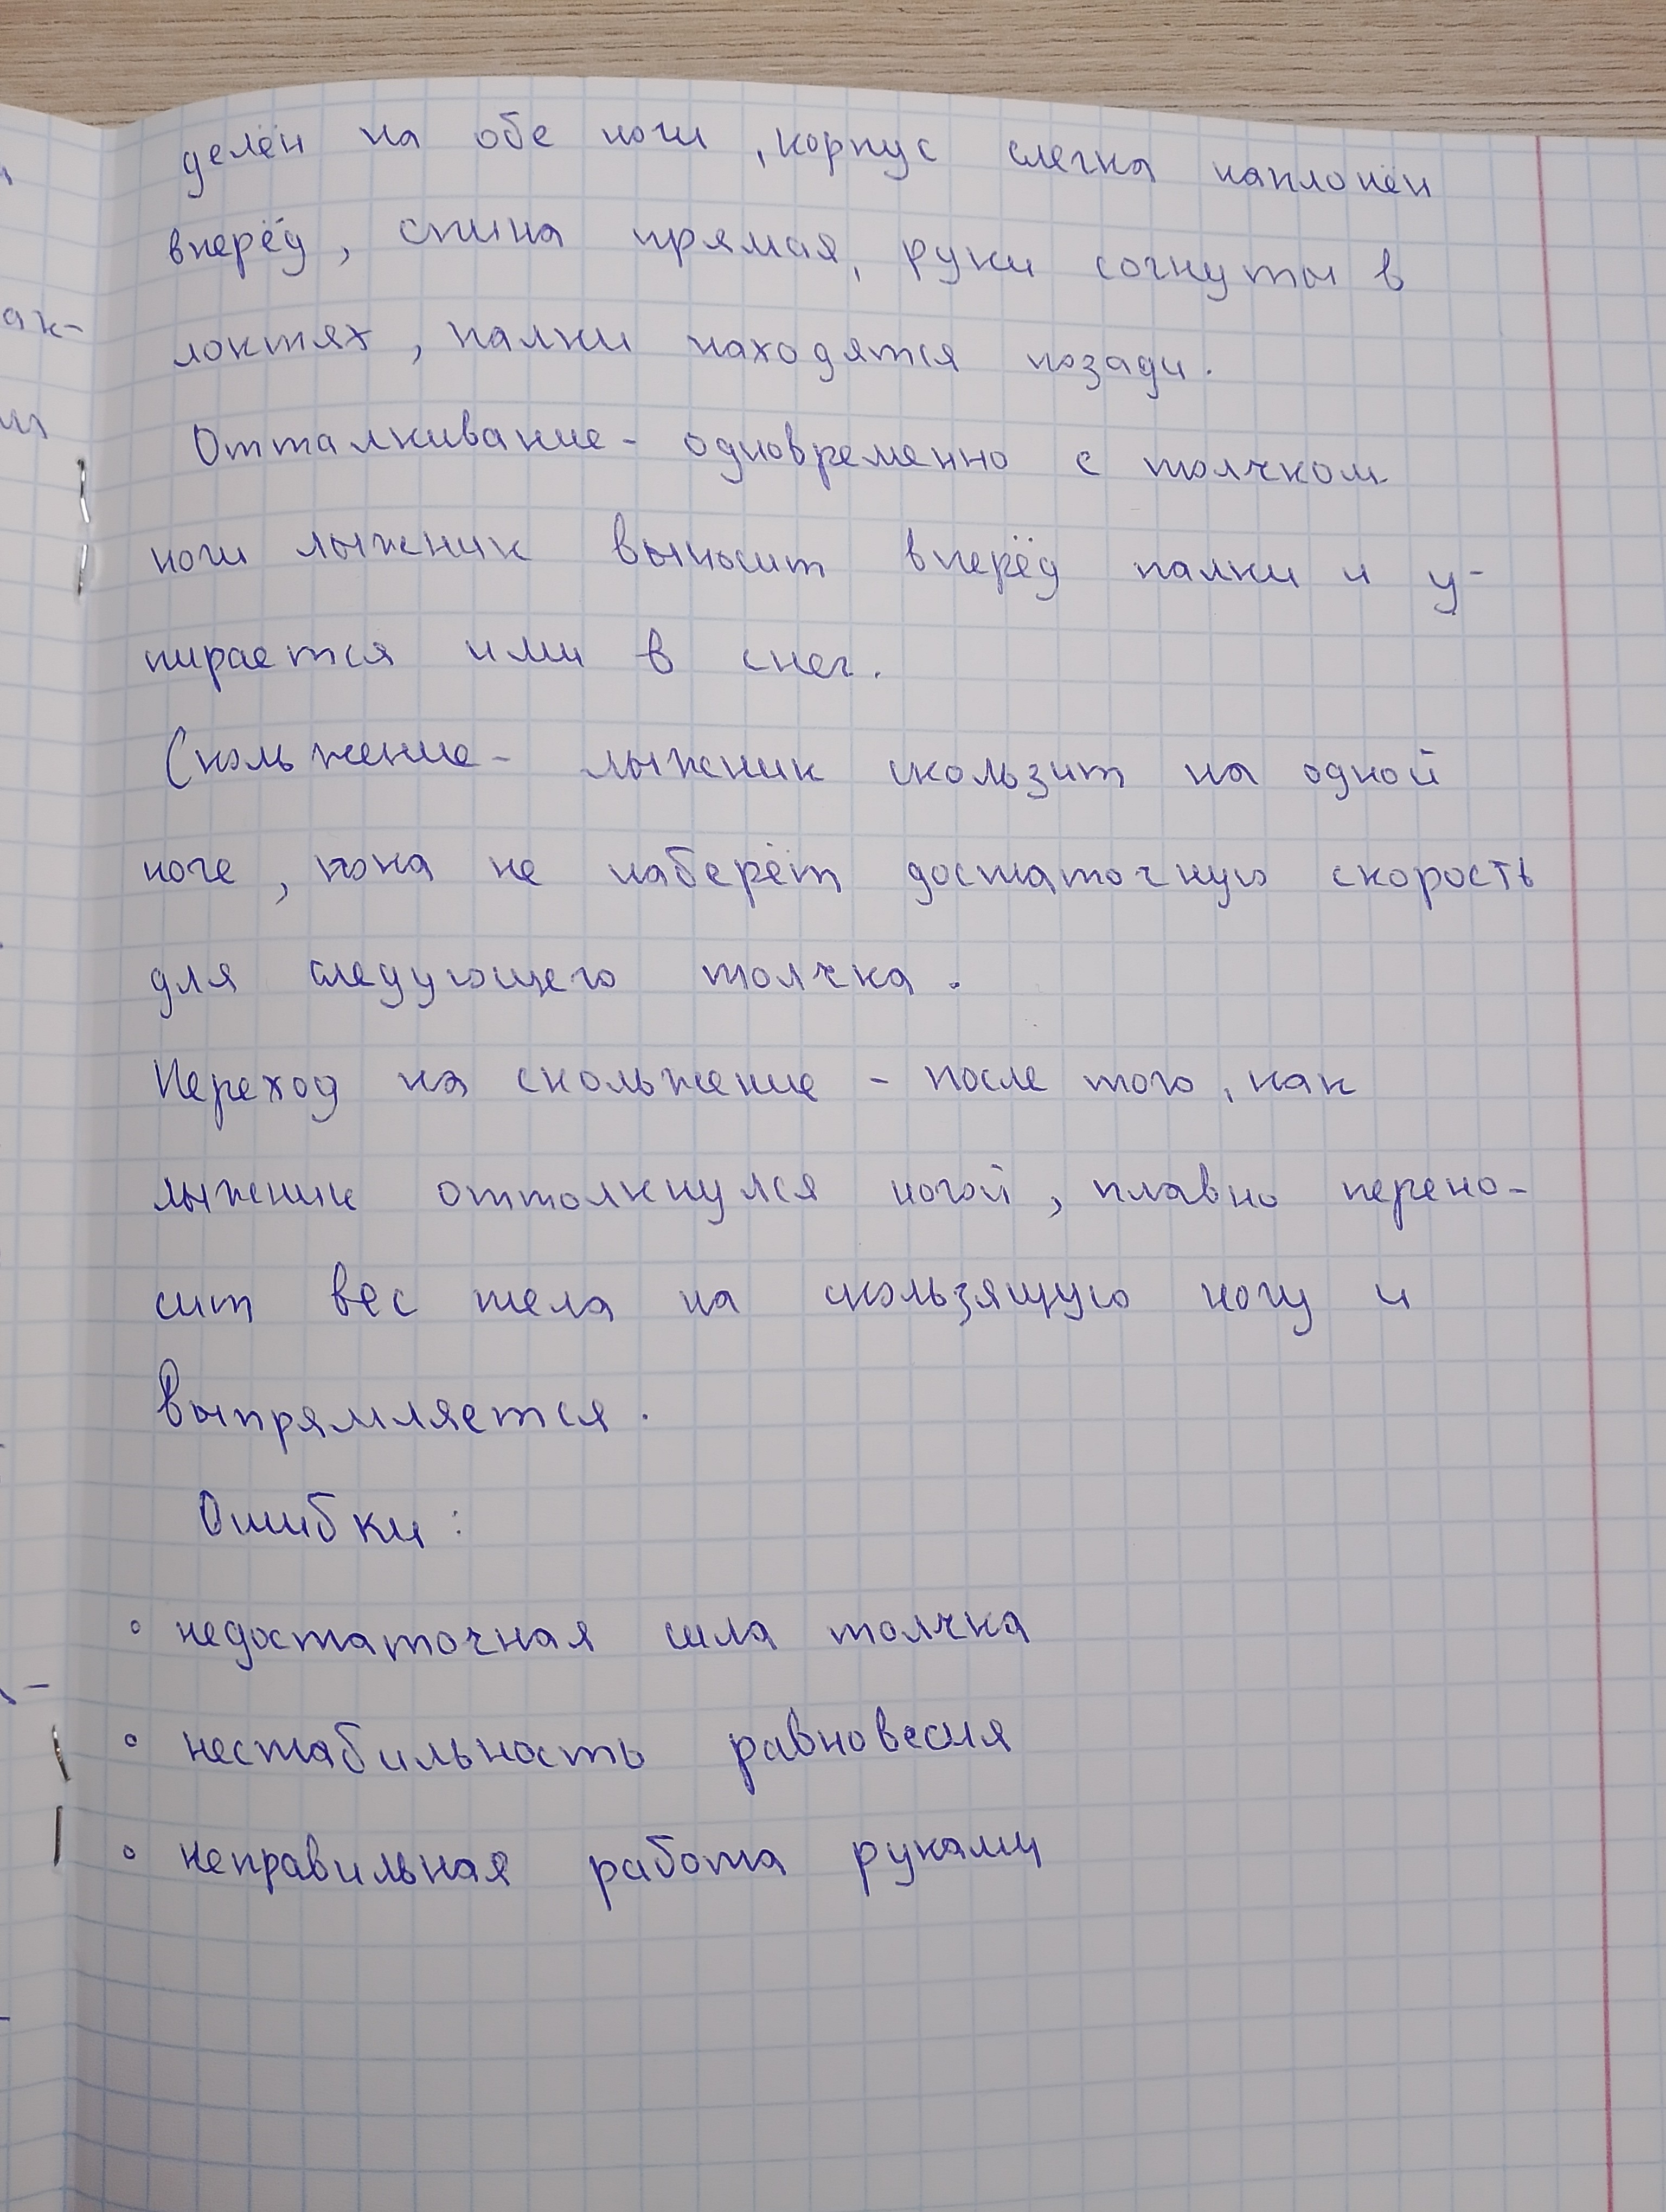 делён на обе ноги, корпус слегка наклонён
вперёд, спина прямая, руки согнуты в
локтях, палки находятся позади.
Отталкивание - одновременно с толчком
ноги лыжник выносит вперёд палки и у-
пирается ими в снег.
Скольжение - лыжник скользит на одной
ноге, пока не наберёт достаточную скорость
для следующего толчка.
Переход на скольжение - после того, как
лыжник оттолкнулся ногой, плавно перено-
сит вес тела на скользящую ногу и
выпрямляется.
Ошибки:
° недостаточная сила толчка
° нестабильность равновесия
° неправильная работа руками